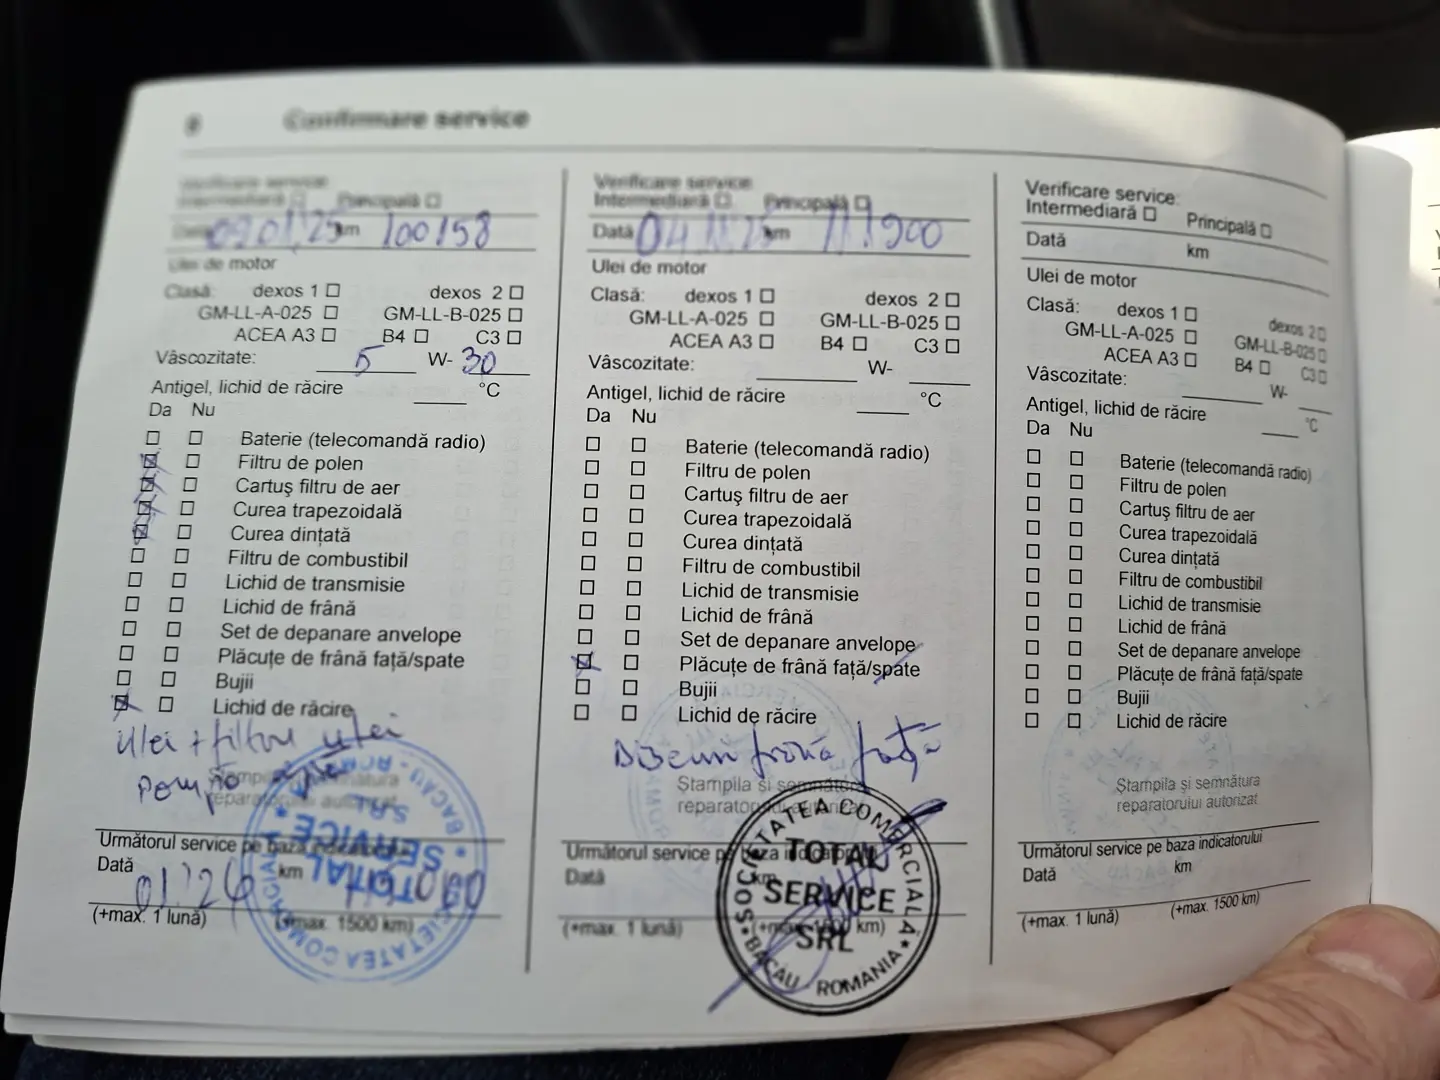 8 Confirmare service
Verificare service:
Intermediară ☐ Principală ☐
Data 09.01.25 km 100158
Ulei de motor
Clasă: dexos 1 ☐ dexos 2 ☐
GM-LL-A-025 ☐ GM-LL-B-025 ☐
ACEA A3 ☐ B4 ☐ C3 ☐
Vâscozitate: 5 W- 30
Antigel, lichid de răcire ____ °C
Da Nu
☐ ☐ Baterie (telecomandă radio)
☒ ☐ Filtru de polen
☒ ☐ Cartuş filtru de aer
☒ ☐ Curea trapezoidală
☒ ☐ Curea dinţată
☐ ☐ Filtru de combustibil
☐ ☐ Lichid de transmisie
☐ ☐ Lichid de frână
☐ ☐ Set de depanare anvelope
☐ ☐ Plăcuţe de frână faţă/spate
☐ ☐ Bujii
☒ ☐ Lichid de răcire
Ulei + filtru ulei
pompă
Ştampila şi semnătura
reparatorului autorizat
Următorul service pe baza indicatorului
Dată 01.'26 km
(+max. 1 lună) (+max. 1500 km)
SOCIETATEA COMERCIALĂ
TOTAL
SERVICE
SRL
BACĂU - ROMANIA
Verificare service:
Intermediară ☐ Principală ☐
Dată 04.11.25 km 111900
Ulei de motor
Clasă: dexos 1 ☐ dexos 2 ☐
GM-LL-A-025 ☐ GM-LL-B-025 ☐
ACEA A3 ☐ B4 ☐ C3 ☐
Vâscozitate: ____ W- ____
Antigel, lichid de răcire ____ °C
Da Nu
☐ ☐ Baterie (telecomandă radio)
☐ ☐ Filtru de polen
☐ ☐ Cartuş filtru de aer
☐ ☐ Curea trapezoidală
☐ ☐ Curea dinţată
☐ ☐ Filtru de combustibil
☐ ☐ Lichid de transmisie
☐ ☐ Lichid de frână
☐ ☐ Set de depanare anvelope
☒ ☐ Plăcuţe de frână faţă/spate
☐ ☐ Bujii
☐ ☐ Lichid de răcire
Discuri frână faţă
Ştampila şi semnătura
reparatorului autorizat
Următorul service pe baza indicatorului
Dată km
(+max. 1 lună) (+max. 1500 km)
SOCIETATEA COMERCIALĂ
TOTAL
SERVICE
SRL
BACĂU - ROMANIA
Verificare service:
Intermediară ☐ Principală ☐
Dată km
Ulei de motor
Clasă: dexos 1 ☐ dexos 2 ☐
GM-LL-A-025 ☐ GM-LL-B-025 ☐
ACEA A3 ☐ B4 ☐ C3 ☐
Vâscozitate: ____ W- ____
Antigel, lichid de răcire ____ °C
Da Nu
☐ ☐ Baterie (telecomandă radio)
☐ ☐ Filtru de polen
☐ ☐ Cartuş filtru de aer
☐ ☐ Curea trapezoidală
☐ ☐ Curea dinţată
☐ ☐ Filtru de combustibil
☐ ☐ Lichid de transmisie
☐ ☐ Lichid de frână
☐ ☐ Set de depanare anvelope
☐ ☐ Plăcuţe de frână faţă/spate
☐ ☐ Bujii
☐ ☐ Lichid de răcire
Ştampila şi semnătura
reparatorului autorizat
Următorul service pe baza indicatorului
Dată km
(+max. 1 lună) (+max. 1500 km)